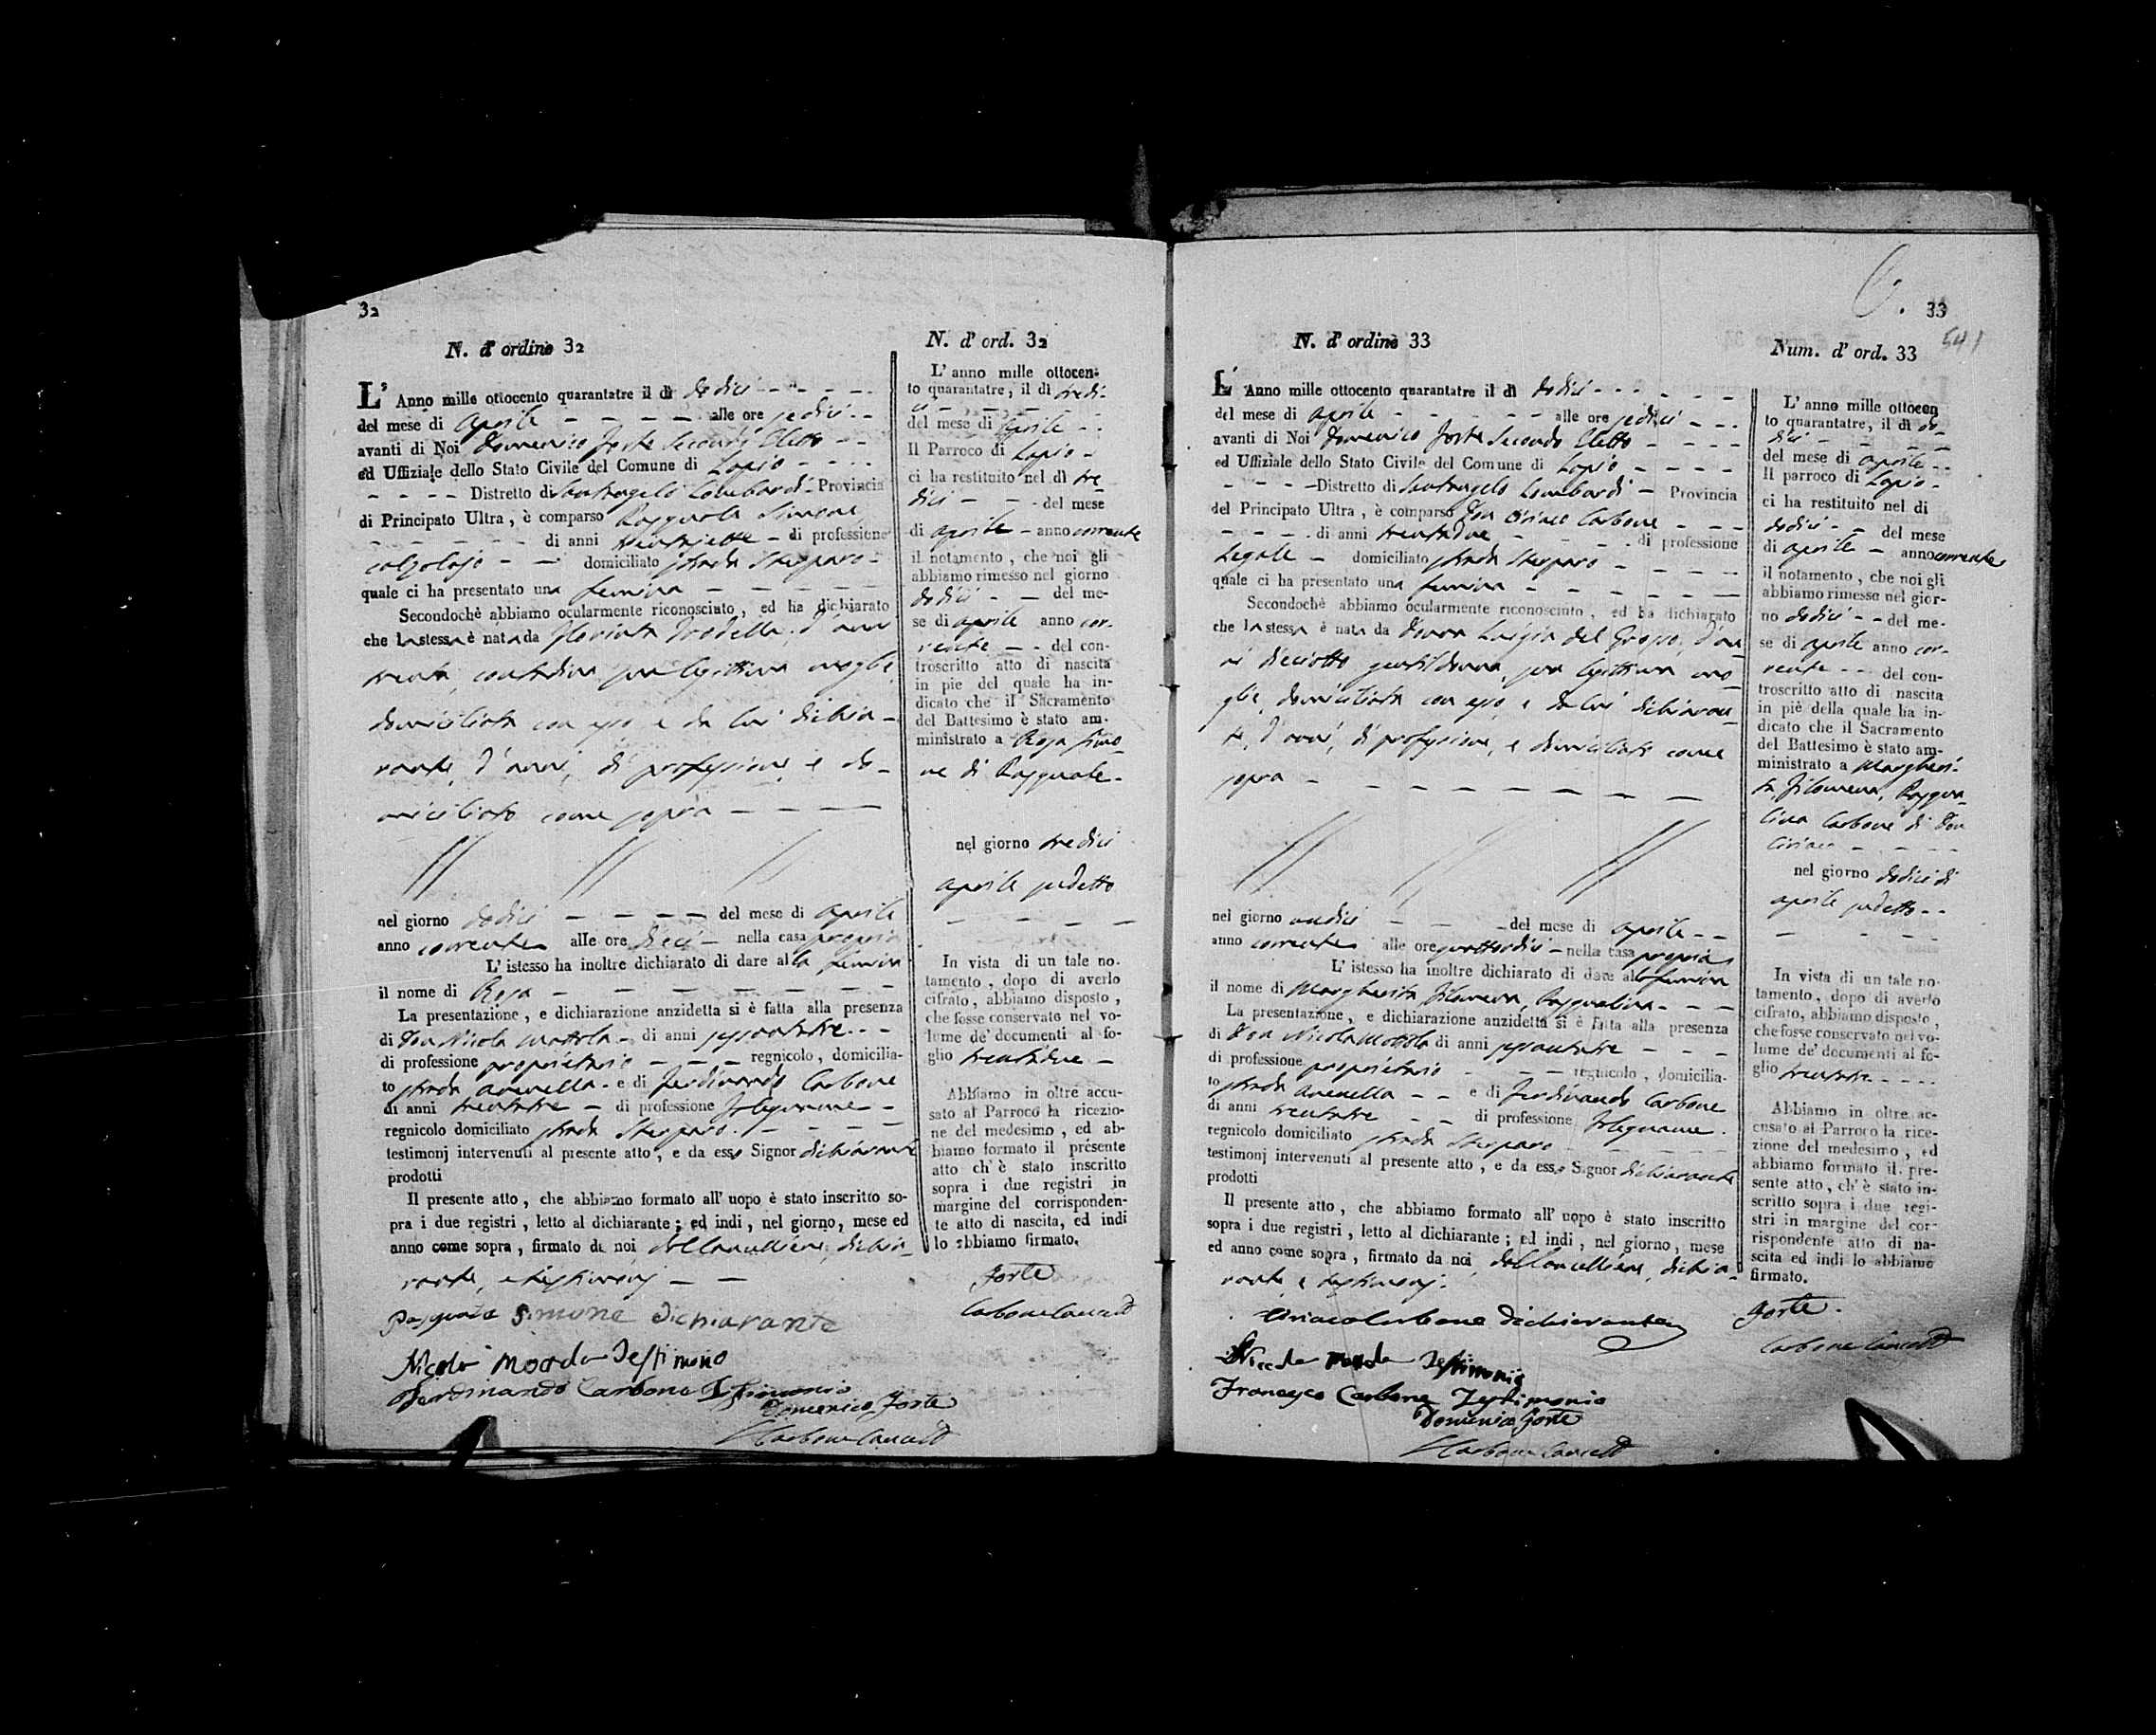 32
N. d' ordine 32
L' Anno mille ottocento quarantatre il dì dodici
del mese di aprile alle ore sedici
avanti di Noi Domenico Forte Secondo Eletto
ed Uffiziale dello Stato Civile del Comune di Lapio
Distretto di Santangelo Lombardi Provincia
di Principato Ultra , è comparso Pasquale Simone
di anni trentasette di professione
calzolajo domiciliato strada Sterparo
quale ci ha presentato una femina
Secondochè abbiamo ocularmente riconosciuto , ed ha dichiarato
che la stessa è nata da d'anni
trenta, contadina sua legittima moglie,
domiciliata con esso, e da lui dichia-
rante, d'anni, di professione, e do-
miciliato come sopra
nel giorno dodici del mese di aprile
anno corrente alle ore dieci nella casa propria
L' istesso ha inoltre dichiarato di dare alla femina
il nome di Rosa
La presentazione , e dichiarazione anzidetta si è fatta alla presenza
di Don Nicola di anni sessantatre
di professione proprietario regnicolo , domicilia-
to strada Avenella e di Ferdinando Carbone
di anni trentatre di professione Falegname
regnicolo domiciliato strada Sterparo
testimonj intervenuti al presente atto , e da esso Signor dichiarante
prodotti
Il presente atto , che abbiamo formato all' uopo è stato inscritto so-
pra i due registri , letto al dichiarante ; ed indi , nel giorno, mese ed
anno come sopra , firmato da noi, dal Cancelliere, dichia-
rante, e testimonj
Pasquale Simone Dichiarante
Nicola Testimonio
Ferdinando Carbone Testimonio
Domenico Forte
Carbone Cancell
N. d' ord. 32
L' anno mille ottocen-
to quarantatre, il dì tredi-
ci
del mese di Aprile
Il Parroco di Lapio
ci ha restituito nel dì tre-
dici del mese
di aprile anno corrente
il notamento , che noi gli
abbiamo rimesso nel giorno
dodici del me-
se di aprile anno cor-
rente del con-
troscritto atto di nascita
in piè del quale ha in-
dicato che il Sacramento
del Battesimo è stato am-
ministrato a Rosa Simo-
ne di Pasquale
nel giorno tredici
aprile sudetto
In vista di un tale no-
tamento , dopo di averlo
cifrato , abbiamo disposto ,
che fosse conservato nel vo-
lume de' documenti al fo-
glio trentadue
Abbiamo in oltre accu-
sato al Parroco la ricezio-
ne del medesimo , ed ab-
biamo formato il presente
atto ch' è stato inscritto
sopra i due registri in
margine del corrisponden-
te atto di nascita, ed indi
lo abbiamo firmato.
Forte
Carbone Cancell
33
541
N. d' ordine 33
L' Anno mille ottocento quarantatre il dì dodici
del mese di aprile alle ore sedici
avanti di Noi Domenico Forte Secondo Eletto
ed Uffiziale dello Stato Civile del Comune di Lapio
Distretto di Santangelo Lombardi Provincia
del Principato Ultra , è comparso Don Ciriaco Carbone
di anni trentadue di professione
Legale domiciliato strada Sterparo
quale ci ha presentato una femina
Secondochè abbiamo ocularmente riconosciuto , ed ha dichiarato
che la stessa è nata da Donna Luigia del Grosso, d'an-
ni dieciotto gentildonna, sua legittima mo-
glie, domiciliata con esso, e da lui dichiaran-
te, d'anni, di professione, e domiciliato come
sopra
nel giorno undici del mese di aprile
anno corrente alle ore quattordici nella casa propria
L' istesso ha inoltre dichiarato di dare alla femina
il nome di Margherita Filomena, Pasqualina
La presentazione , e dichiarazione anzidetta si è fatta alla presenza
di Don Nicola di anni sessantatre
di professione proprietario regnicolo , domicilia-
to strada Avenella e di Ferdinando Carbone
di anni trentatre di professione Falegname
regnicolo domiciliato strada Sterparo
testimonj intervenuti al presente atto , e da esso Signor dichiarante
prodotti
Il presente atto , che abbiamo formato all' uopo è stato inscritto
sopra i due registri , letto al dichiarante ; ed indi , nel giorno, mese
ed anno come sopra , firmato da noi, dal Cancelliere, dichia-
rante e testimonj.
Ciriaco Carbone Dichiarante
Testimonio
Francesco Carbone Testimonio
Domenico Forte
Carbone Cancell
Num. d' ord. 33
L' anno mille ottocen
to quarantatre, il dì do-
dici
del mese di aprile
Il parroco di Lapio
ci ha restituito nel di
dodici del mese
di aprile anno corrente
il notamento, che noi gli
abbiamo rimesso nel gior-
no dodici del me-
se di aprile anno cor-
rente del con-
troscritto atto di nascita
in piè della quale ha in-
dicato che il Sacramento
del Battesimo è stato am-
ministrato a Margheri-
ta, Filomena, Pasqua-
lina Carbone di Don
Ciriaco
nel giorno dodici di
aprile sudetto
In vista di un tale no-
tamento , dopo di averlo
cifrato, abbiamo disposto ,
che fosse conservato nel vo-
lume de' documenti al fo-
glio trentatre
Abbiamo in oltre ac-
cusato al Parroco la rice-
zione del medesimo , ed
abbiamo formato il pre-
sente atto , ch' è stato in-
scritto sopra i due regi-
stri in margine del cor-
rispondente atto di na-
scita ed indi lo abbiamo
firmato.
Forte
Carbone Cancell